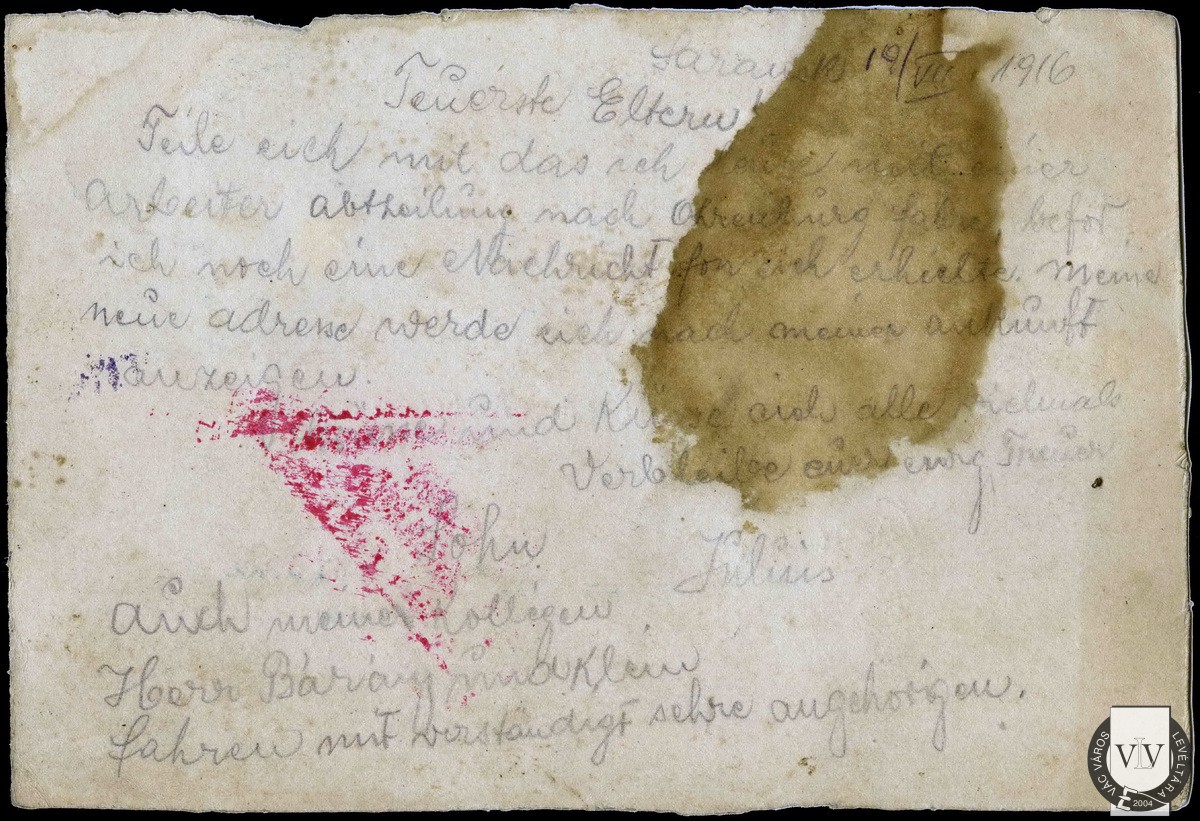 Saransk 19/VII 1916
Teuerste Eltern!
Teile eich mit das ich mit einer
Arbeiter abtheilung nach Ohrenburg fahre befor
ich noch eine Nachricht fon eich erhielte. Meine
neue adresse werde eich nach meiner ankunft
anzeigen.
und Küsse eich alle vielmals
Verbleibe euer ewig Treuer
Sohn Julius
Auch meine Kollegen
Herr Bárány und Klein
fahren mit verständigt sehre angehörigen.
VÁC VÁROS LEVÉLTÁRA
VLV
2004